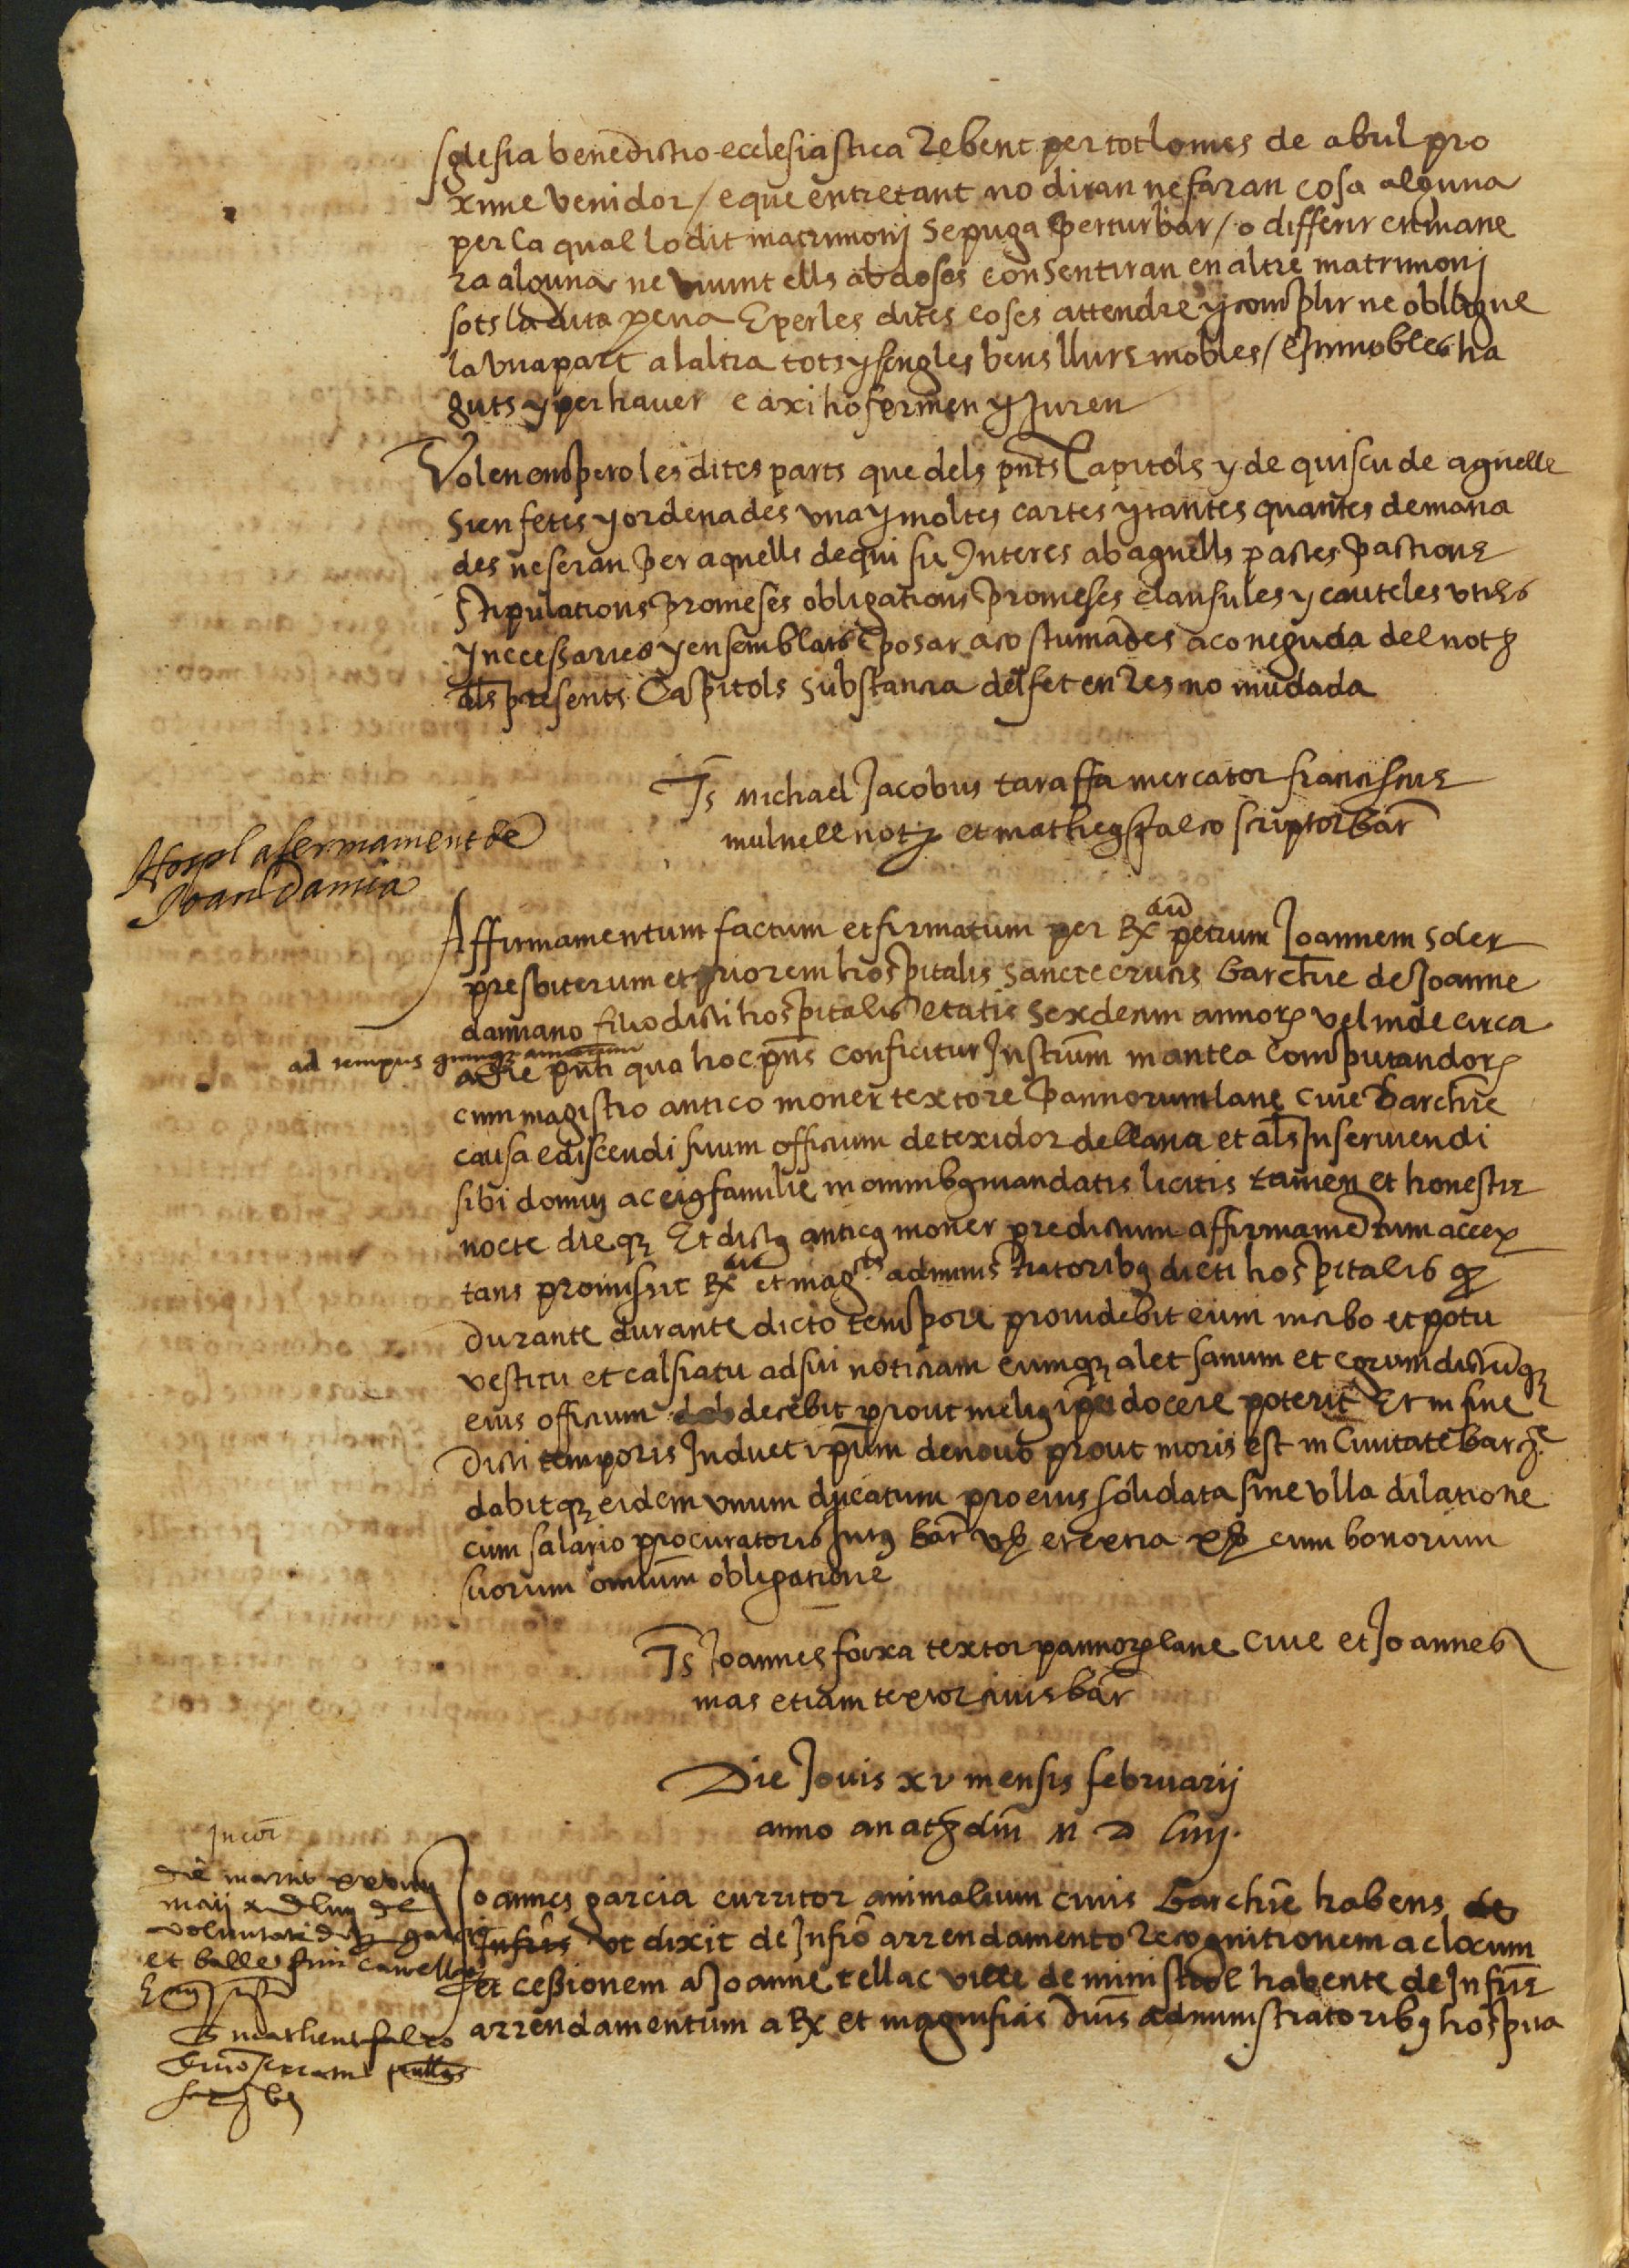 sglesia benedictio ecclesiastica Rebent per tot lo mes de abril pro
xime venidor / e que entretant no diran ne faran cosa alguna
per la qual lo dit matrimonj se puga perturbar / o differir en mane
ra alguna ne vivint ells abdosos consentiran en altre matrimonj
sots la dita pena E per les dites coses attendre y complir ne obligue
la vna part a laltra tots y sengles bens llurs mobles / e Jmmobles ha
guts y per hauer e axi ho fermen y Juren
Volen empero les dites parts que dels pnts Capitols y de quiscu de aquells
sien fetes y ordenades vna y moltes cartes y tantes quantes demana
des ne seran per aquells de qui sie Interes ab aquells pactes pactions
stipulations promeses obligations promeses clausules y cauteles vtils
y necessaries y en semblants posar acostumades a coneguda del not
als presents Capitols substancia del fet en Res no mudada
Ts michael Jacobus taraffa mercator franciscus
mulnell not et matheus falco scriptor Bar
Hospl afermament de
Joan Damia
Affirmamentum factum et firmatum per Rx dum petrum Joannem soler
presbiterum et priorem hospitalis sancte crucis Barchne de Joanne
damiano filio dicti hospitalis etatis sexdecim annor vel inde circa
ad tempus quinque annorum
a die pnti qua hoc pns conficitur Instrum in antea computandor
cum magistro antico moner textore pannorum lane ciue Barchne
causa ediscendi suum officium de texidor de llana et als Inseruiendi
sibi domuj ac eius familie in omnibus mandatis licitis tamen et honestis
nocte dieque Et dictus anticus moner predictum affirmamentum accep
tans promissit Rx due et magcis administratoribus dicti hospitalis q
durante durante dicto tempore prouidebit eum in cibo et potu
vestitu et calsiatu ad sui noticiam eumque alet sanum et egrum dictumque
eius officium docebit prout melius ipse docere poterit Et in fine
dicti temporis Induet ipsum de nouo prout moris est in Ciuitate barche
dabitque eidem vnum ducatum pro eius solidata sine vlla dilatione
cum salario procuratoris Intus Bar v et extra x cum bonorum
suorum omnium obligatione
Ts Joannes foixa textor pannor lane ciue et Joannes
mas etiam textor ciuis bar
Die Jouis xv mensis februarij
anno a nat dni M D Liiij.
Joannes garcia curritor animalium ciuis Barchne habens de
Infris vt dixit de Infro arrendamento Recognitionem ac locum
et cessionem a Joanne tellac ville de ministrol habente de Infris
arrendamentum a Rx et magnificis dnis administratoribus hospita
die martis
maij
voluntate
et